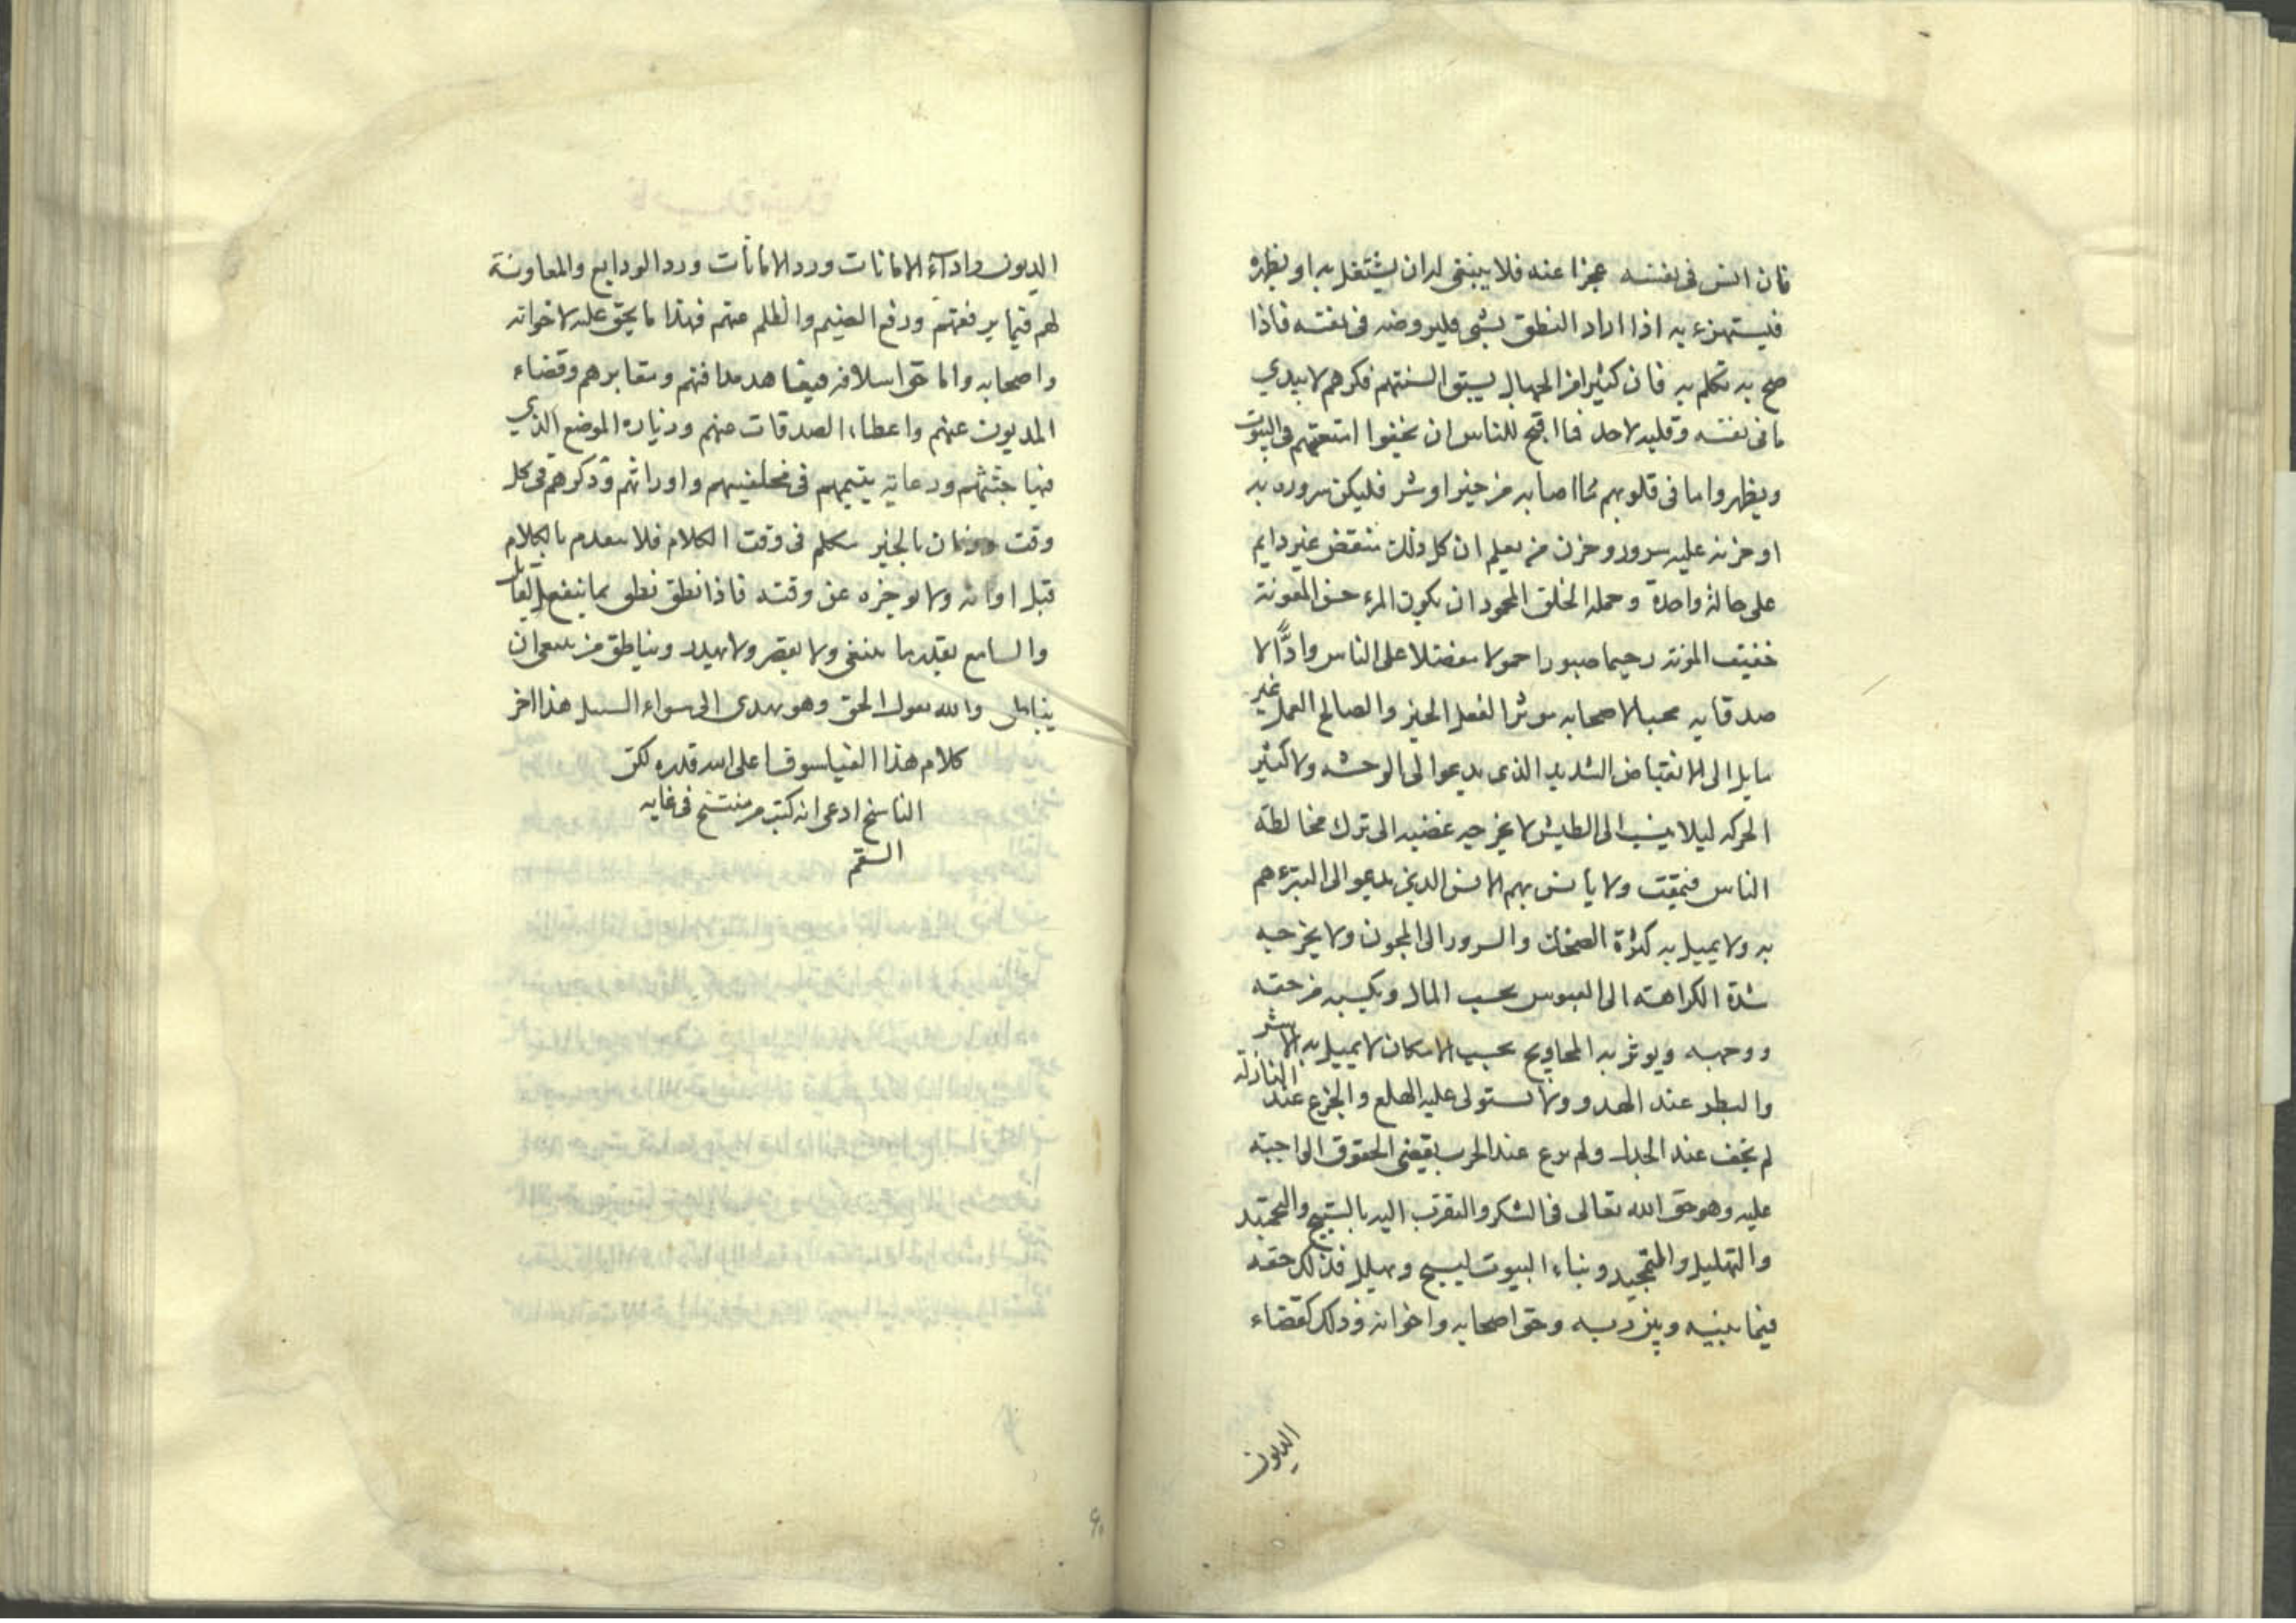 فان انس فى نفسه عجزا عنه فلا ينبغى له ان يشتغل به او يظهره
فيستهزء به اذا اراد النطق بشى فليروضه فى نفسه فاذا
صح به تكلم به فان كثيرا من الجهال يسبق السنتهم فكرهم لا يبدي
ما فى نفسه وقلبه لاحد فما اقبح للناس ان يخفوا امتعتهم فى البيوت
ويظهروا ما فى قلوبهم مما اصابه من خير او شر فليكن سروره به
او حزنه عليه سرور وحزن من يعلم ان كل ذلك منتقض غير دايم
على حالة واحدة وجملة الخلق المحمود ان يكون المرء حسن المعونة
خفيف المونة رحيما صبورا حمولا متفضلا على الناس وادًّا لا
صدقايه محبا لاصحابه موثرا لفعل الخير والصالح العمل غير
مايل الى الانقباض الشديد الذى يدعوا الى الوحشه ولا كثير
الحركه ليلا ينسب الى الطيش لا يخرجه غضبه الى ترك مخالطة
الناس فيمقت ولا يانس بهم الانس الذى يدعوا الى التبرء هم
به ولا يميل به كثرة الضحك والسرور الى المجون ولا يخرجه
شدة الكراهته الى العبوس بحسب المال ويكسبه من حقه
ووجهه ويوثر به المحاويج بحسب الامكان لا يميل به الاشر
والبطر عند الهدو ولا تستولى عليه الهلع والجزع عند النازلة
لم يخف عند الجدل ولم يرع عند الحرب يقضى الحقوق الواجبة
عليه وهو حق الله تعالى فى الشكر والتقرب اليه بالتسبيح والتحميد
والتهليل والتمجيد وبناء البيوت ليسبح ويهلل فذلك حقه
فيما بينه وبين ربه وحق اصحابه واخوانه وذلك كقضاء
الديون
الديون واداء الامانات ورد الامانات ورد الودايع والمعاونة
لهم فيما يرفعهم ودفع الضيم والظلم عنهم فهذا ما يحق عليه لاخوانه
واصحابه واما حق اسلافه فيعاهد مدافنهم ومقابرهم وقضاء
المديون عنهم واعطاء الصدقات عنهم وزيارة الموضع الذي
فيها جثثهم ورعاية يتيمهم فى مخلفيهم واوراثهم وذكرهم فى كل
وقت وزمان بالخير يتكلم فى وقت الكلام فلا يتقدم بالكلام
قبل اوانه ولا يوخره عن وقته فاذا نطق نطق بما ينفع القايل
والسامع بقدر ما ينبغى ولا يقصر ولا يهدر ويناطق من يدعى ان
يناطق والله يقول الحق وهو يهدى الى سواء السبيل هذا اخر
كلام هذا الفيلسوف اعلى الله قدره لكن
الناسخ ادعى انه كتب من منتسخ فى غاية
السقم